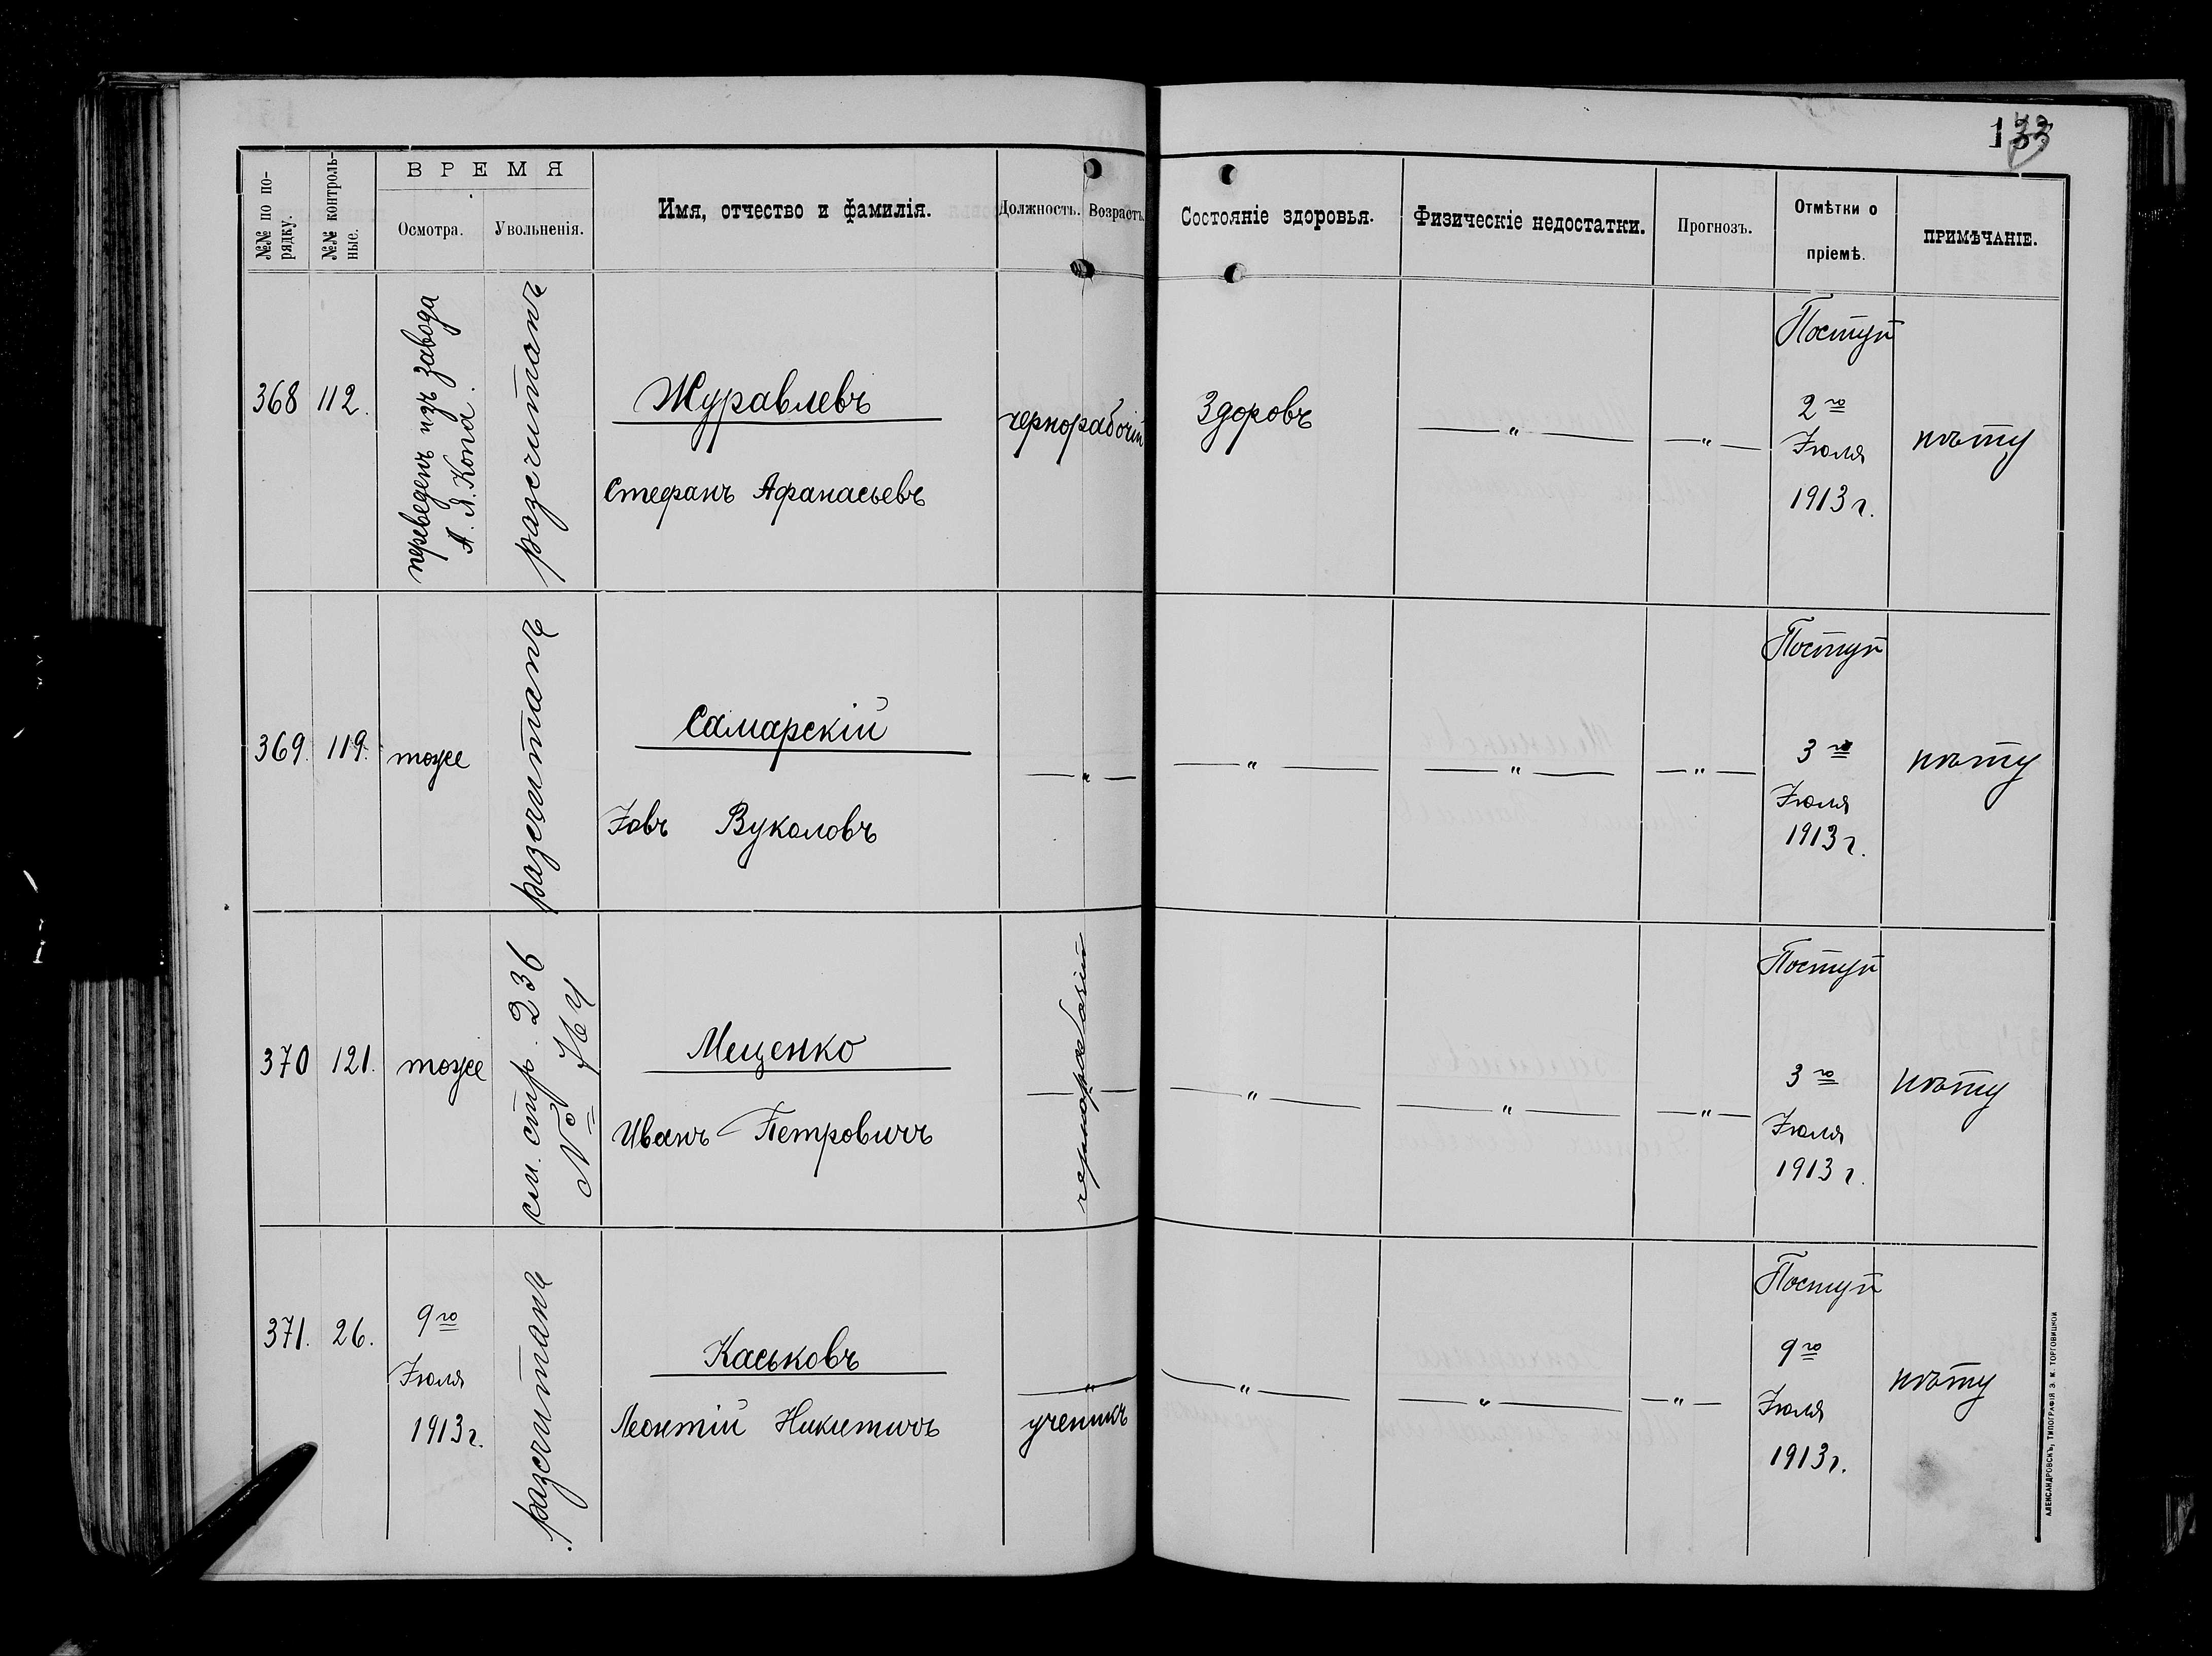 133
ВРЕМЯ
№№ по по-
рядку.
№№ контроль-
ные.
Осмотра.
Увольненія.
Имя, отчество и фамилія.
Должность.
Возрастъ.
Состояніе здоровья.
Физическіе недостатки.
Прогнозъ.
Отмѣтки о
пріемѣ.
ПРИМѢЧАНІЕ.
368
112.
переведенъ изъ завода
А. Я. Копа.
разсчитанъ
Журавлевъ
Стефанъ Афанасьевъ
чернорабочій
Здоровъ
— " —
— " —
Поступ
2го
Іюля
1913 г.
нѣту
369.
119.
тоже
разсчитанъ
Самарскій
Іовъ Вуколовъ
— " —
— " —
— " —
— " —
Поступ
3го
Іюля
1913 г.
нѣту
370
121.
тоже
см. стр. 236
№ 764
Меценко
Иванъ Петровичъ
чернорабочій
— " —
— " —
— " —
Поступ
3го
Іюля
1913 г.
нѣту
371.
26.
9го
Іюля
1913 г.
разсчитанъ
Каськовъ
Леонтій Никитичъ
— " —
ученикъ
— " —
— " —
— " —
Поступ
9го
Іюля
1913 г.
нѣту
АЛЕКСАНДРОВСКЪ, ТИПОГРАФІЯ Э. М. ТОРГОВИЦКОЙ